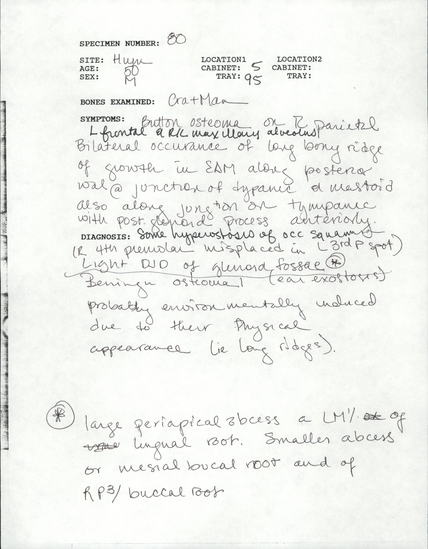 SPECIMEN NUMBER: 80
SITE: Hum LOCATION1 LOCATION2
AGE: 50 CABINET: 5 CABINET:
SEX: M TRAY: 95 TRAY:
BONES EXAMINED: Cra+Man
SYMPTOMS: Button osteoma on R parietal
L frontal & R/L maxillary alveolus
Bilateral occurance of long bony ridge
of growth in EAM along posterior
wall @ junction of tympanic & mastoid
also along junction on tympanic
with post glenoid process anteriorly.
DIAGNOSIS: Some hyperostosis of occ squamous
(R 4th premolar misplaced in L 3rd P spot)
Light DJD of glenoid fossae *
Beningn osteoma (ear exostoses)
probably environmentally induced
due to their physical
appearance (ie long ridges).
* large periapical abcess a LM1/ of
lingual root. Smaller abcess
or mesial bucal root and of
RP3/ buccal root